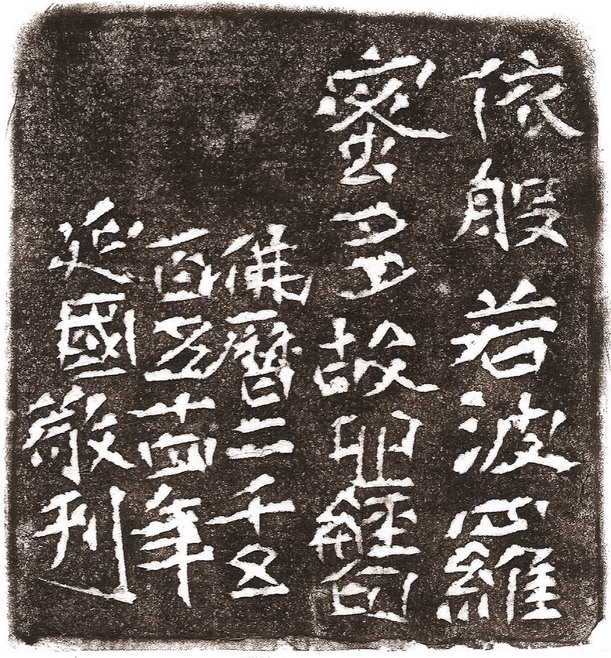 依般若波羅
蜜多故經
佛曆二千五
百四年
延國敬刊